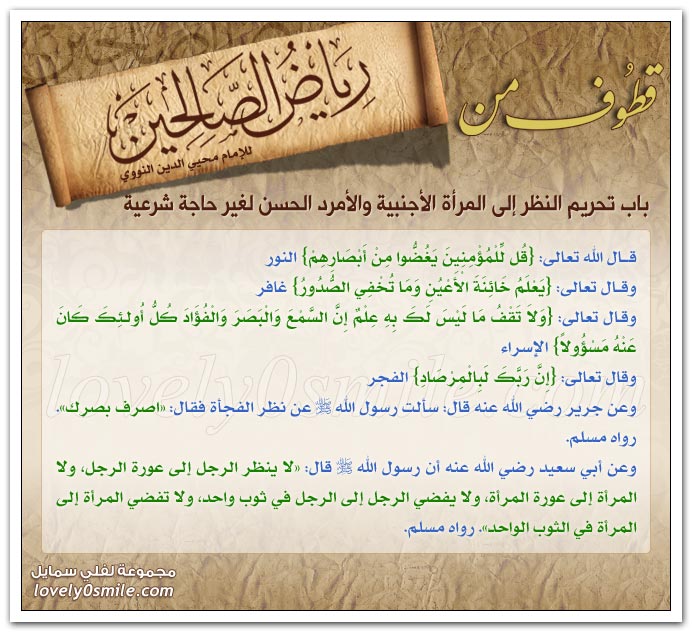 قطوف من
رياض الصالحين
للإمام محيي الدين النووي
باب تحريم النظر إلى المرأة الأجنبية والأمرد الحسن لغير حاجة شرعية
قـال الله تعالى: {قُل لِّلْمُؤْمِنِينَ يَغُضُّوا مِنْ أَبْصَارِهِمْ} النور
وقـال تعالى: {يَعْلَمُ خَائِنَةَ الأَعْيُنِ وَمَا تُخْفِي الصُّدُورُ} غافر
وقال تعالى: {وَلاَ تَقْفُ مَا لَيْسَ لَكَ بِهِ عِلْمٌ إِنَّ السَّمْعَ وَالْبَصَرَ وَالْفُؤَادَ كُلُّ أُولـئِكَ كَانَ
عَنْهُ مَسْؤُولاً} الإسراء
وقال تعالى: {إِنَّ رَبَّكَ لَبِالْمِرْصَادِ} الفجر
وعن جرير رضي الله عنه قال: سألت رسول الله ﷺ عن نظر الفجأة فقال: «اصرف بصرك».
رواه مسلم.
وعن أبي سعيد رضي الله عنه أن رسول الله ﷺ قال: «لا ينظر الرجل إلى عورة الرجل، ولا
المرأة إلى عورة المرأة، ولا يفضي الرجل إلى الرجل في ثوب واحد، ولا تفضي المرأة إلى
المرأة في الثوب الواحد». رواه مسلم.
lovely0smile.com
مجموعة لفلي سمايل
lovely0smile.com